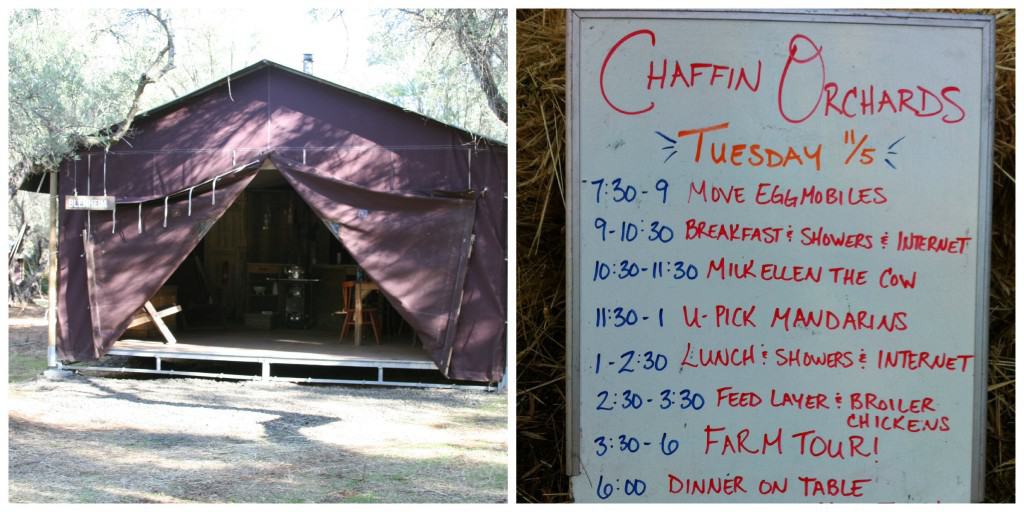 BLENHEIM
CHAFFIN ORCHARDS
TUESDAY 11/5
7:30-9 MOVE EGGMOBILES
9-10:30 BREAKFAST & SHOWERS & INTERNET
10:30-11:30 MILK ELLEN THE COW
11:30-1 U-PICK MANDARINS
1-2:30 LUNCH & SHOWERS & INTERNET
2:30-3:30 FEED LAYER & BROILER
CHICKENS
3:30-6 FARM TOUR!
6:00 DINNER ON TABLE